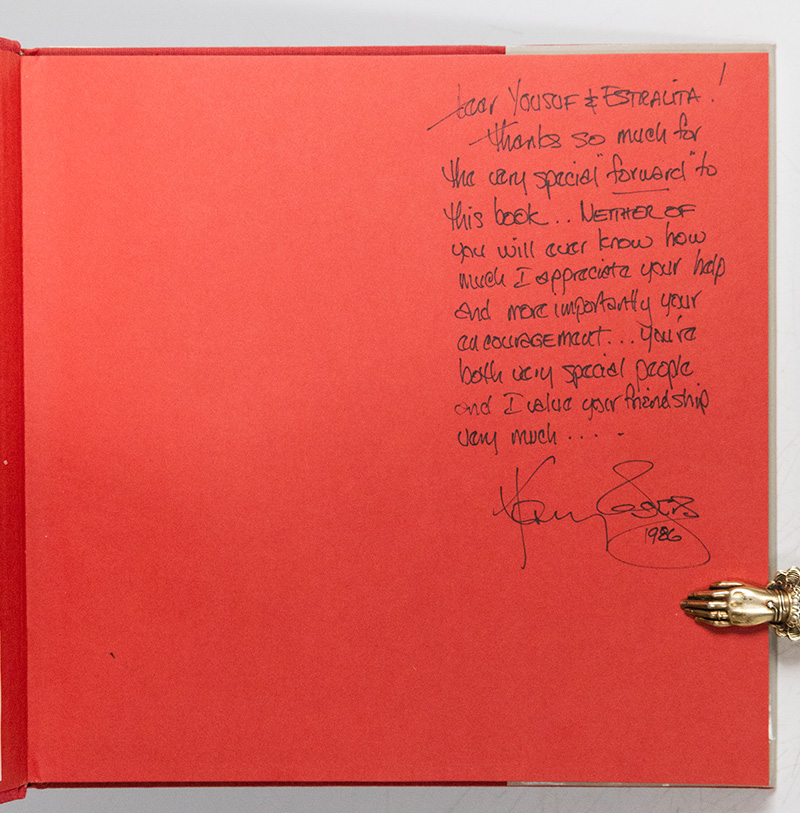 Dear Yousuf & Estralita!
Thanks so much for
the very special "forward" to
this book.. Neither of
you will ever know how
much I appreciate your help
and more importantly your
encouragement... You're
both very special people
and I value your friendship
very much . . . . -
Kenny Rogers
1986